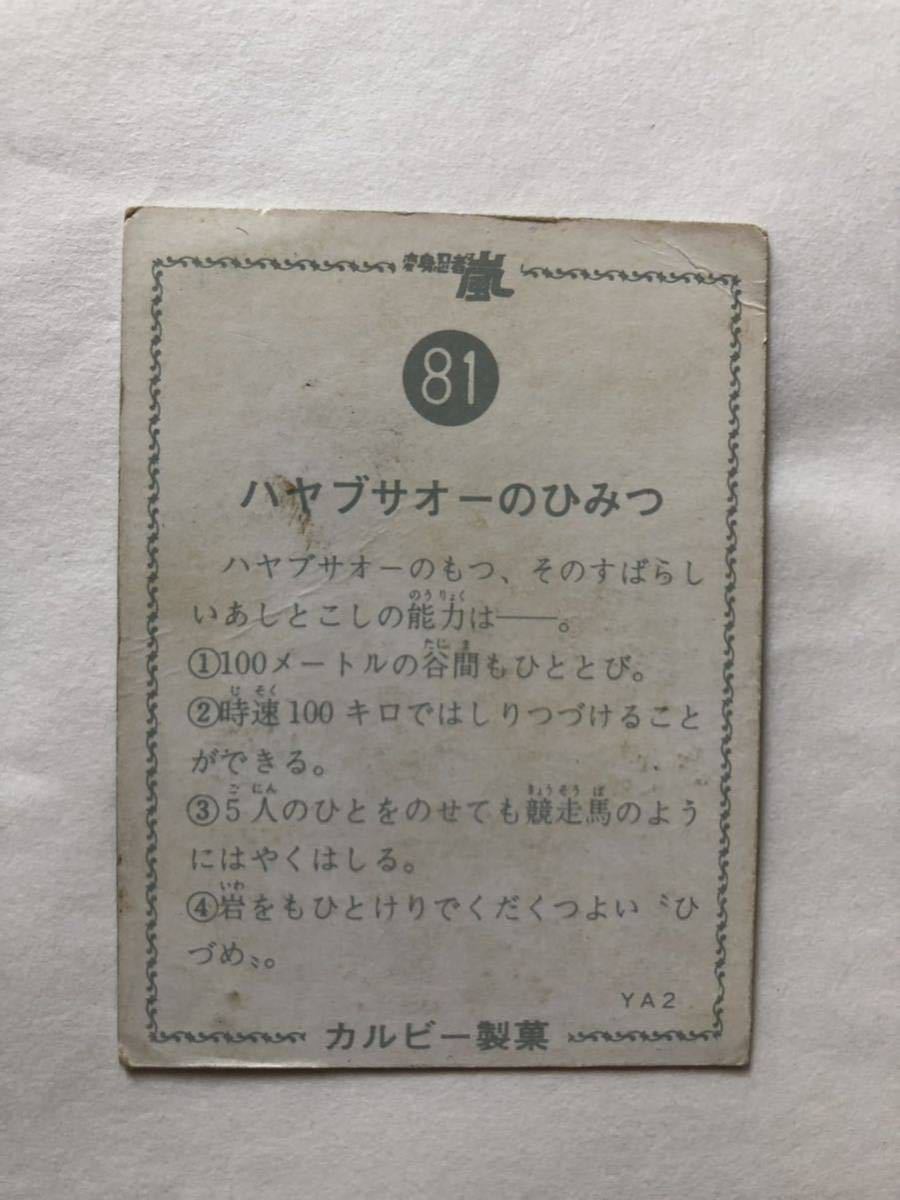 変身忍者嵐
81
ハヤブサオーのひみつ
ハヤブサオーのもつ、そのすばらし
いあしとこしの能力は――。
①100メートルの谷間もひととび。
②時速100キロではしりつづけること
ができる。
③5人のひとをのせても競走馬のよう
にはやくはしる。
④岩をもひとけりでくだくつよい〝ひ
づめ〟。
YA2
カルビー製菓